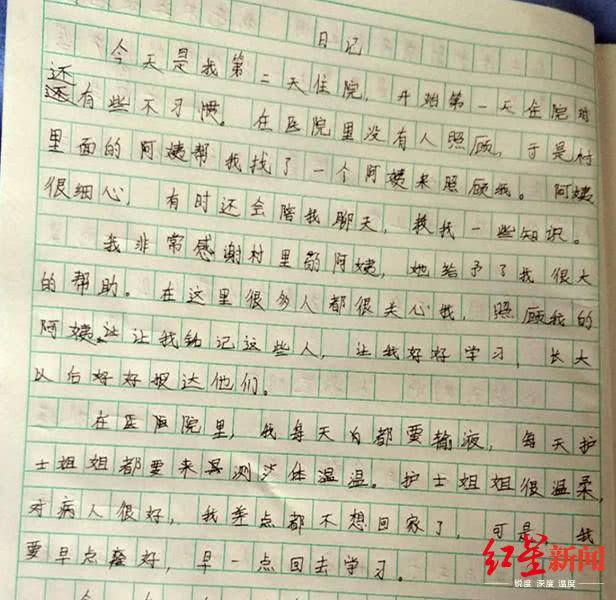 日记
今天是我第二天住院，开始第一天住院时
还有些不习惯。在医院里没有人照顾，于是村
里面的阿姨帮我找了一个阿姨来照顾我。阿姨
很细心，有时还会陪我聊天，教我一些知识。
我非常感谢村里的阿姨，她给予了我很大
的帮助。在这里很多人都很关心我，照顾我的
阿姨让我铭记这些人，让我好好学习，长大
以后好好报达他们。
在医院里，我每天都要输液，每天护
士姐姐都要来测体温。护士姐姐很温柔，
对病人很好，我差点都不想回家了，可是，我
要早点好，早一点回去学习。
红星新闻
锐度 深度 温度